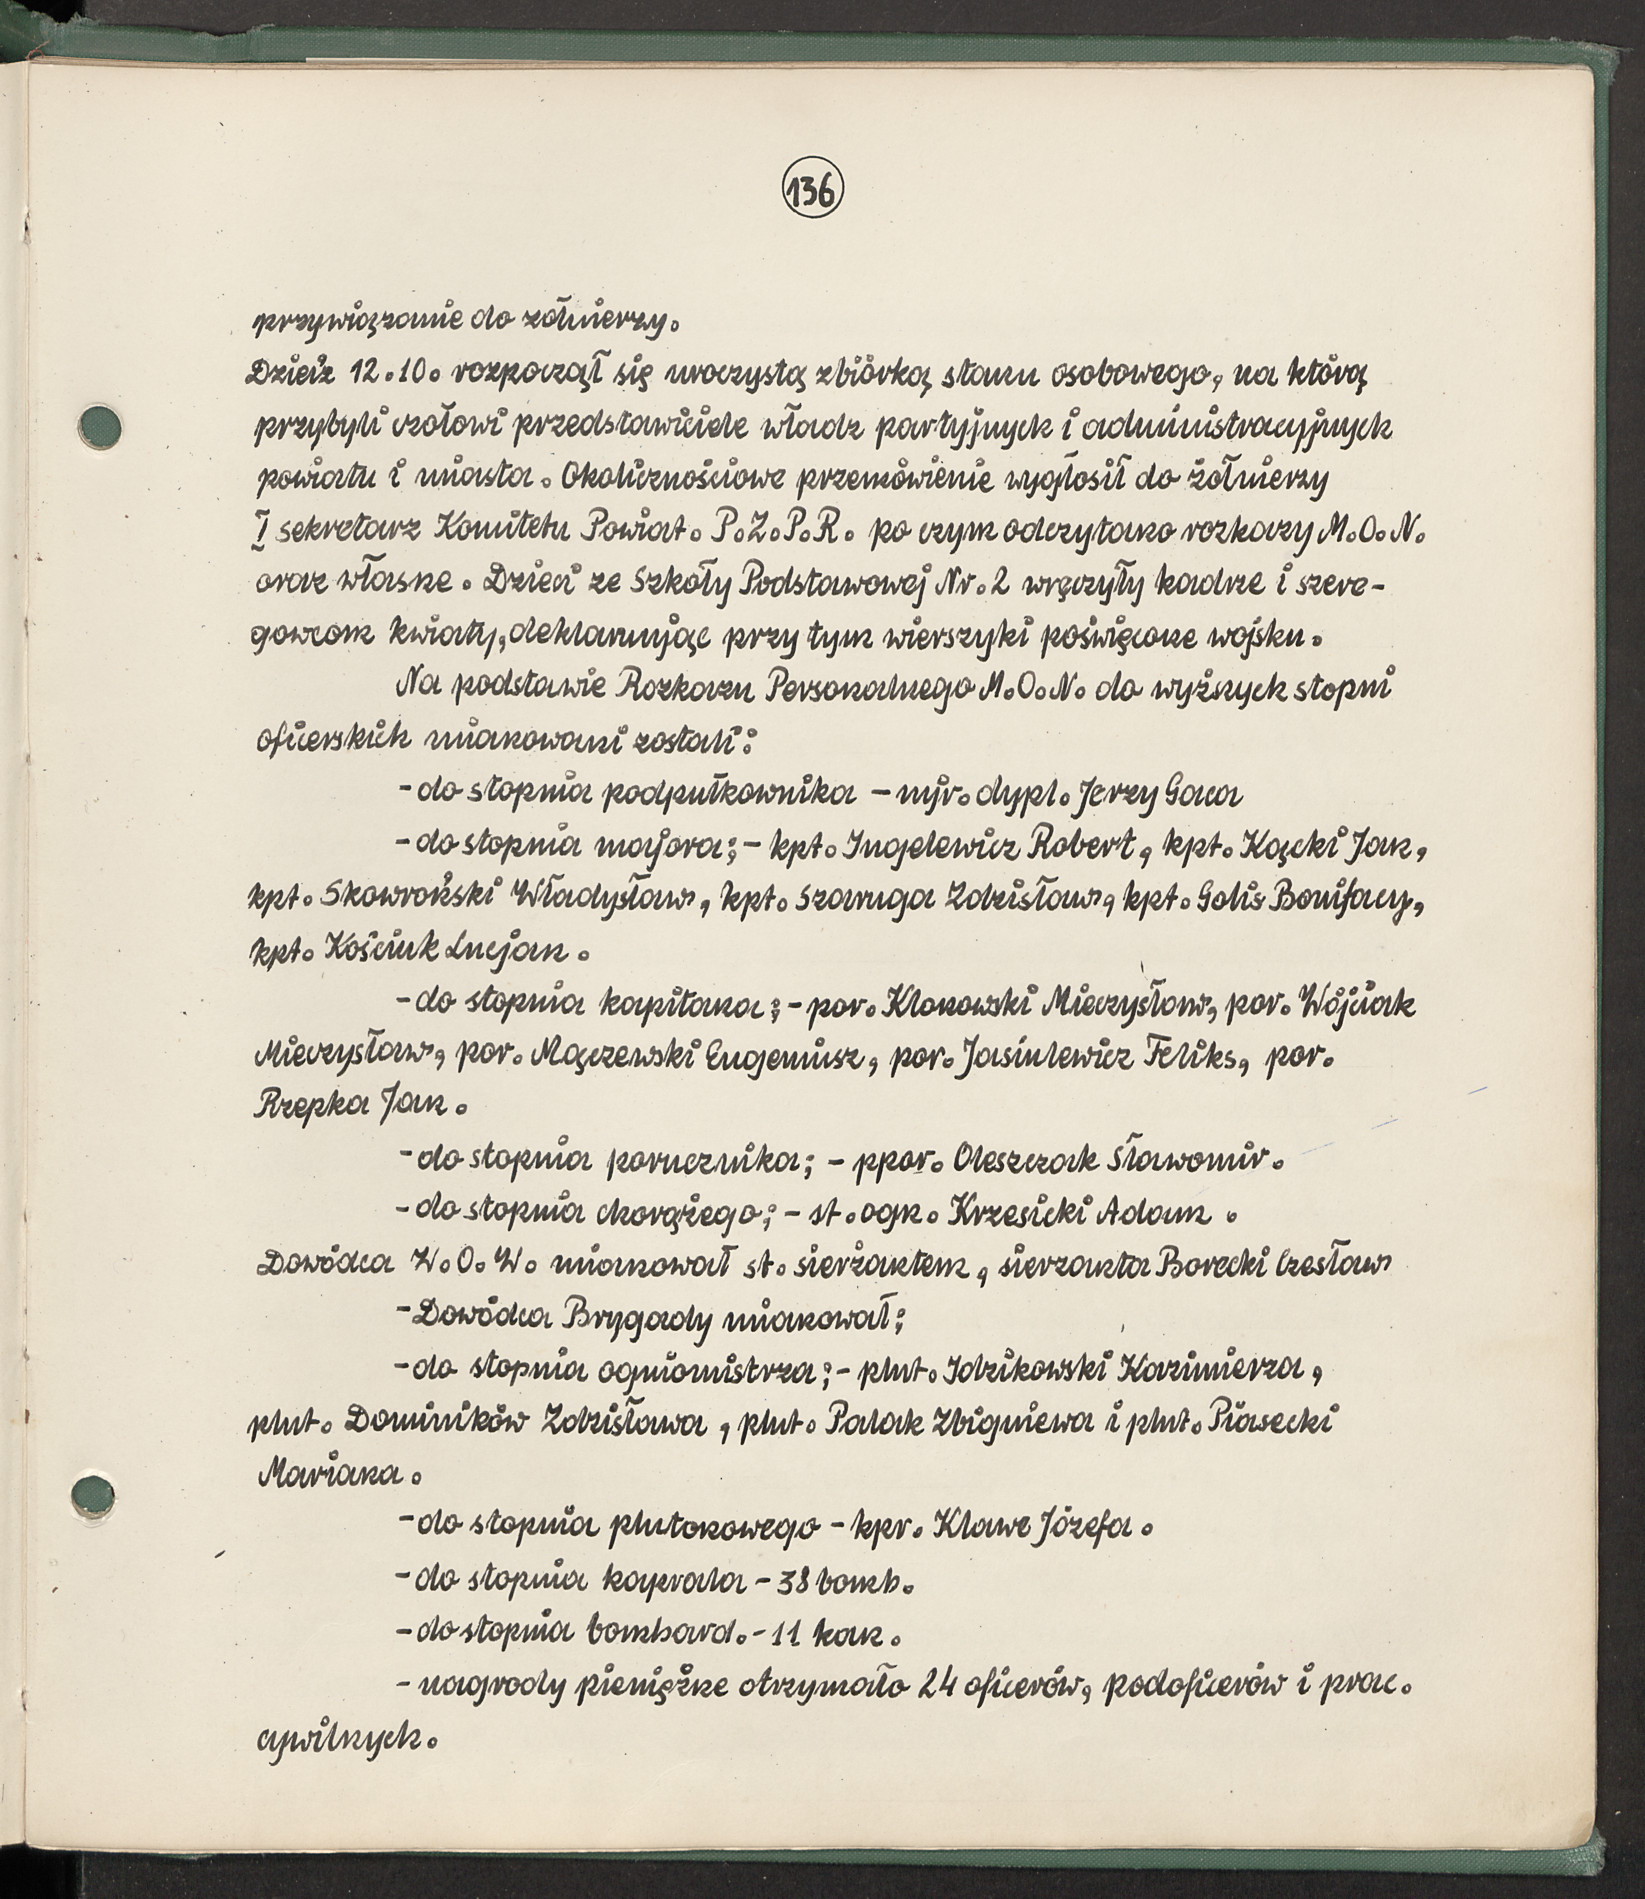 136
przywiązanie do żołnierzy.
Dzień 12.10. rozpoczął się uroczystą zbiórką stanu osobowego, na którą
przybyli czołowi przedstawiciele władz partyjnych i administracyjnych
powiatu i miasta. Okolicznościowe przemówienie wygłosił do żołnierzy
I sekretarz Komitetu Powiat. P.Z.P.R. po czym odczytano rozkazy M.O.N.
oraz własne. Dzieci ze Szkoły Podstawowej Nr.2 wręczyły kadrze i szere-
gowcom kwiaty, deklamując przy tym wierszyki poświęcone wojsku.
Na podstawie Rozkazu Personalnego M.O.N. do wyższych stopni
oficerskich mianowani zostali:
- do stopnia podpułkownika - mjr. dypl. Jerzy Gaca
- do stopnia majora; - kpt. Ingelewicz Robert, kpt. Kącki Jan,
kpt. Skowroński Władysław, kpt. Szaruga Zdzisław, kpt. Golis Bonifacy,
kpt. Kościuk Lucjan.
- do stopnia kapitana; - por. Klonowski Mieczysław, por. Wójciak
Mieczysław, por. Mączewski Eugeniusz, por. Jasiulewicz Feliks, por.
Rzepka Jan.
- do stopnia porucznika; - ppor. Oleszczak Sławomir.
- do stopnia chorążego; - st. ogn. Krzesicki Adam.
Dowódca W.O.W. mianował st. sierżantem, sierżanta Borecki Czesław
- Dowódca Brygady mianował;
- do stopnia ogniomistrza; - plut. Idzikowski Kazimierza,
plut. Dominików Zdzisława, plut. Palak Zbigniewa i plut. Piasecki
Mariana.
- do stopnia plutonowego - kpr. Klawe Józefa.
- do stopnia kaprala - 38 bomb.
- do stopnia bombard. - 11 kan.
- nagrody pieniężne otrzymało 24 oficerów, podoficerów i prac.
cywilnych.